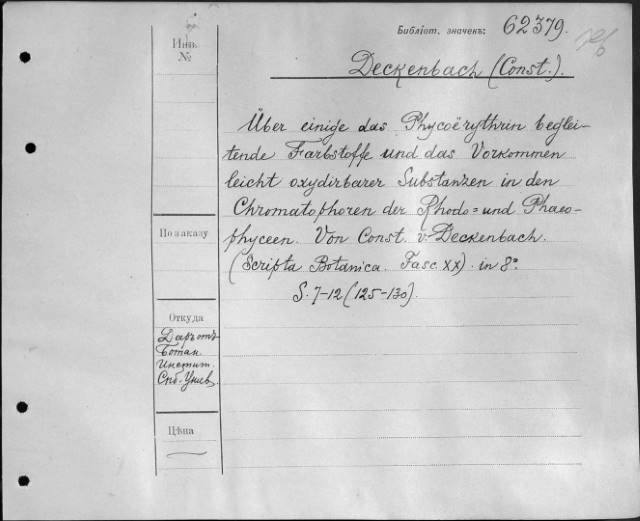 Библіот. значекъ: 62379.
Инв.
№
Deckenbach (Const.).
Über einige das Phycoërythrin beglei-
tende Farbstoffe und das Vorkommen
leicht oxydirbarer Substanzen in den
Chromatophoren der Rhodo= und Phaeo-
phyceen. Von Const. v. Deckenbach.
(Scripta Botanica. Fasc. XX). in 8°
S. 7-12 (125-130).
По заказу
Откуда
Даръ отъ
Ботан.
Инстит.
Спб. Унив.
Цѣна